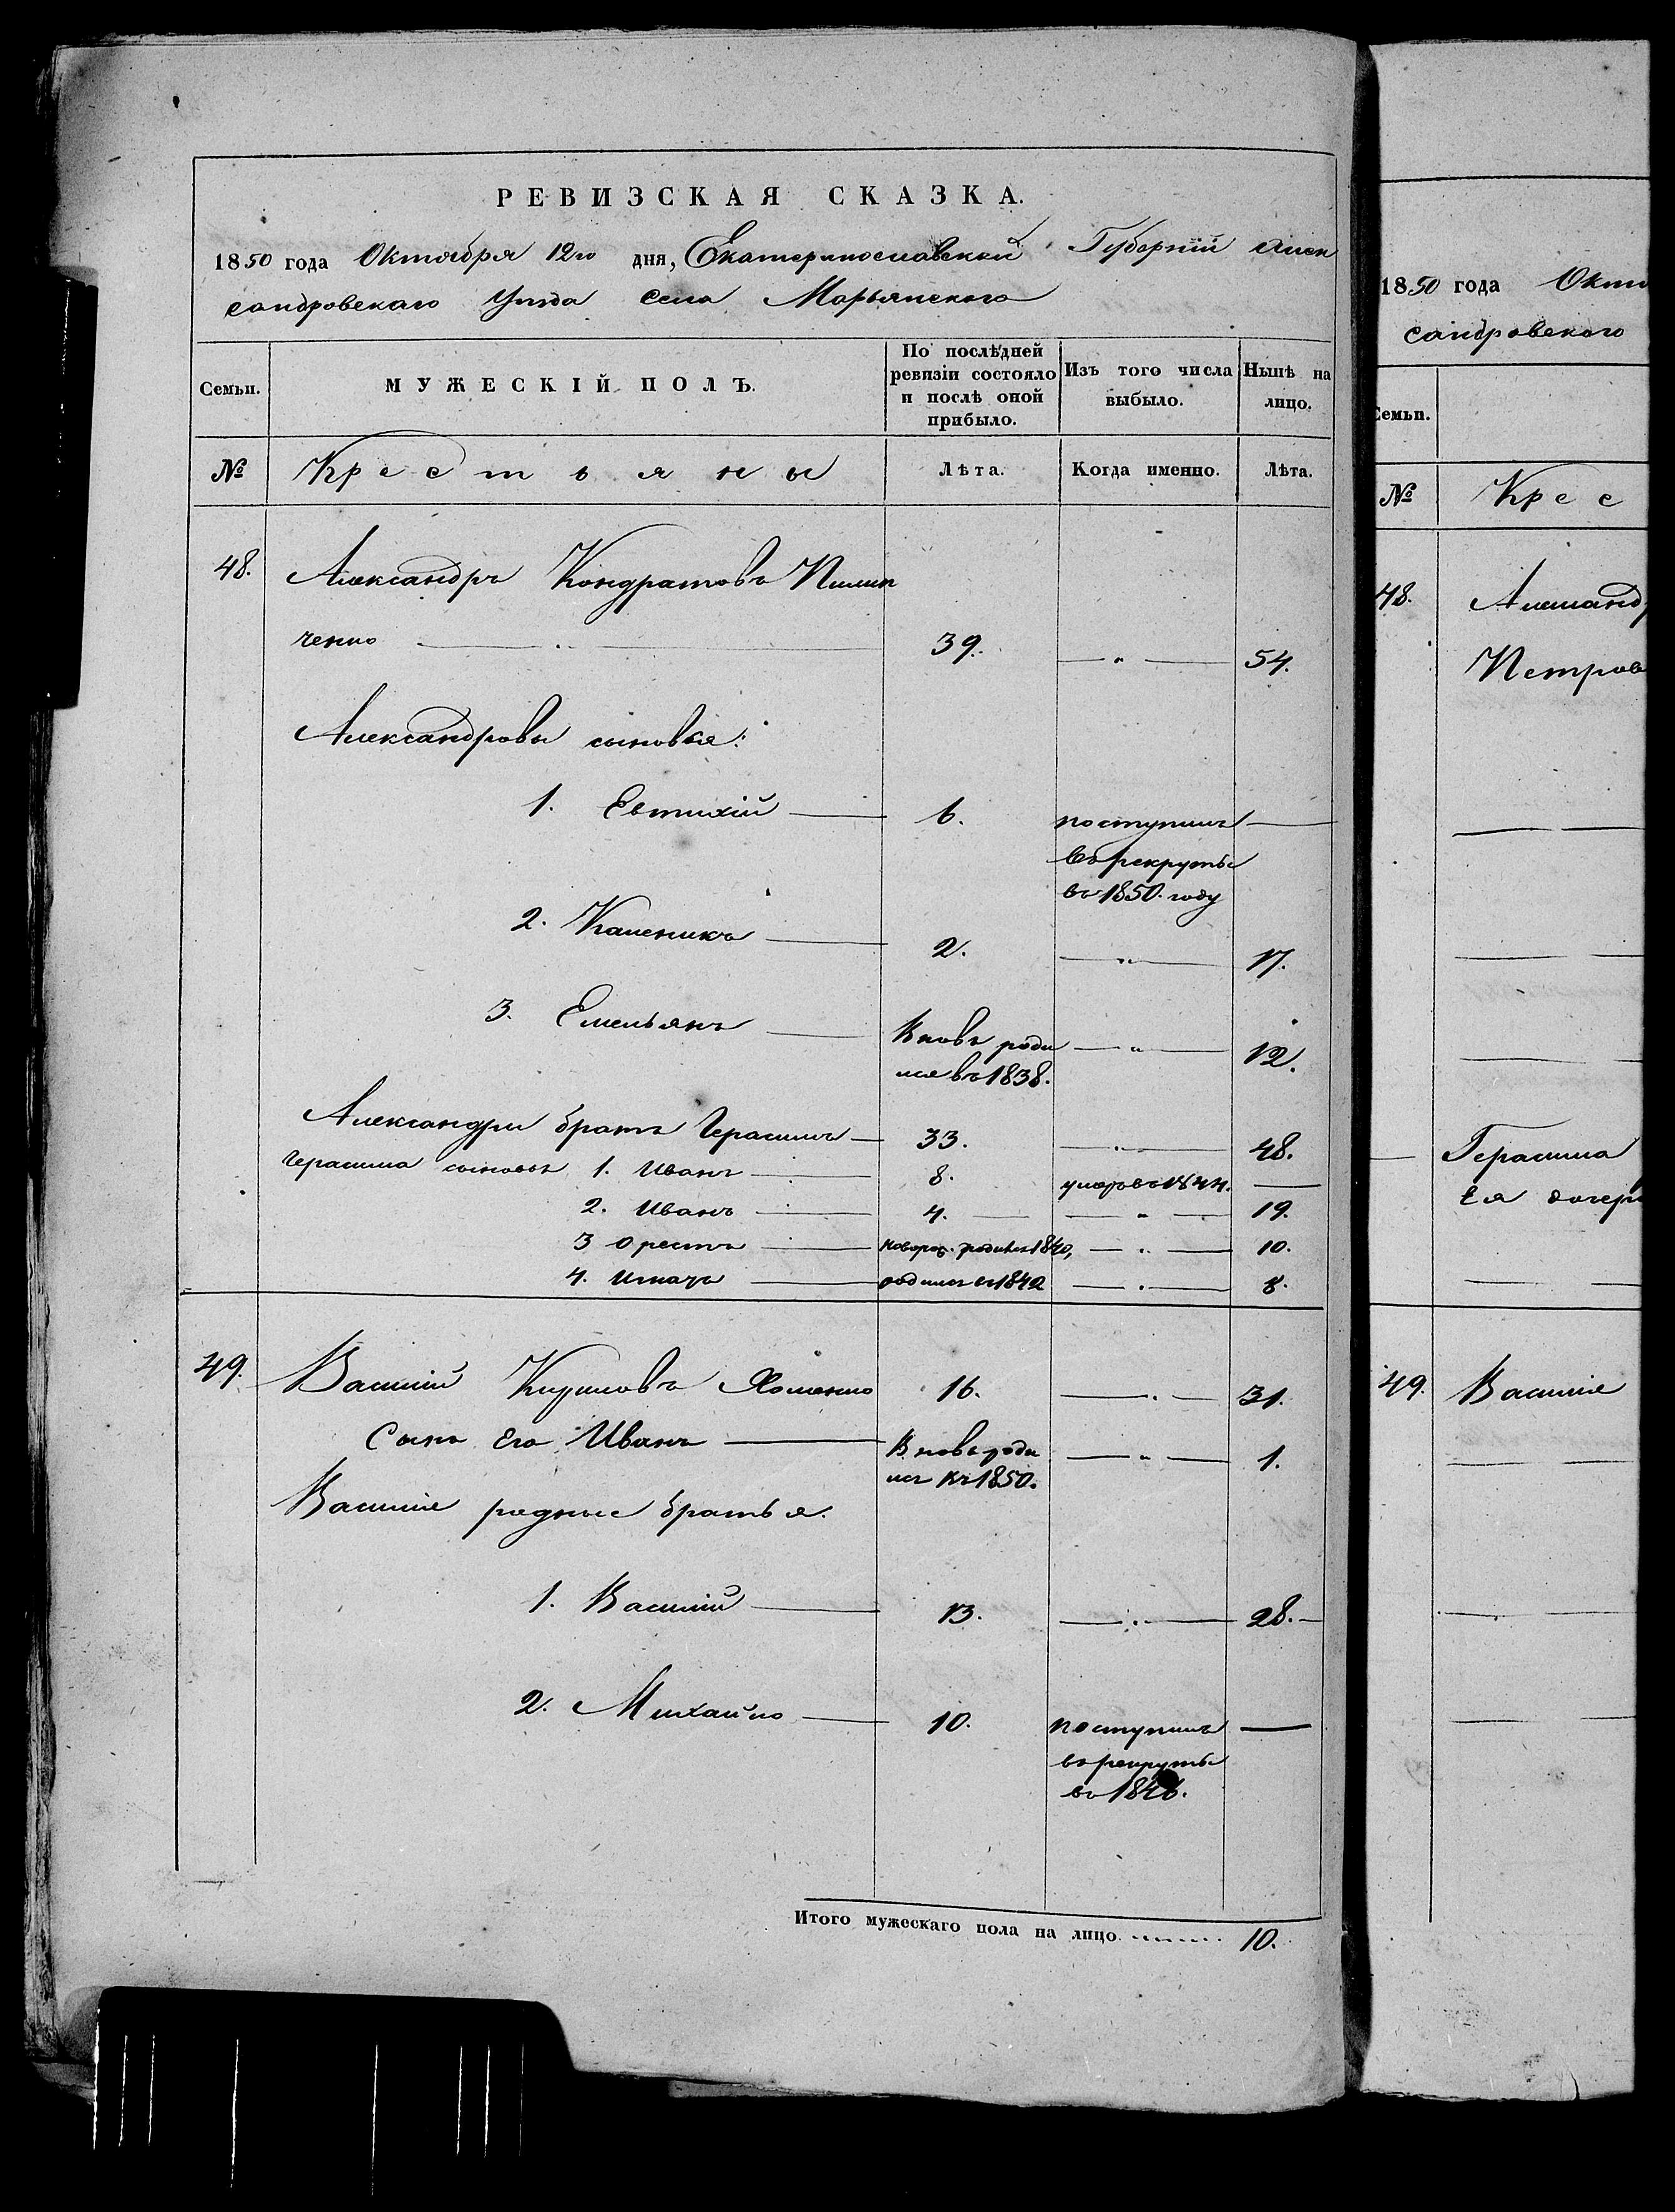 РЕВИЗСКАЯ СКАЗКА.
1850 года Октября 12го дня, Екатеринославской Губерніи Алек
сандровскаго Уезда Села Марьянского
Семьи. МУЖЕСКІЙ ПОЛЪ. По послѣдней ревизіи состояло и послѣ оной прибыло. Изъ того числа выбыло. Нынѣ на лицо.
№ Крестьяны Лѣта. Когда именно. Лѣта.
48. Александръ Кондратовъ Пилип
ченко 39. 54.
Александровы сыновья:
1. Евтихій 6. поступилъ
въ рекруты
въ 1850. году
2. Каленикъ 2. 17.
3. Емельянъ Вновь роди 12.
лся въ 1838.
Александра братъ Герасимъ 33. 48.
Герасима сыновья 1. Иванъ 8. умеръ въ 1844.
2. Иванъ 4. 19.
3 Орестъ новорож. родился 1840, 10.
4. Игнатъ родился въ 1842 8.
49. Василій Кириловъ Хоменко 16. 31.
Сынъ Его Иванъ Вновь роди 1.
лся въ 1850.
Василія родные братья.
1. Василій 13. 28.
2. Михайло 10. поступилъ
въ рекруты
въ 1846.
Итого мужескаго пола на лицо 10.
1850 года Октя
сандровского
Семьи.
№ Крес
48. Александр
Петров
Герасима
Ея дочери
49. Василія